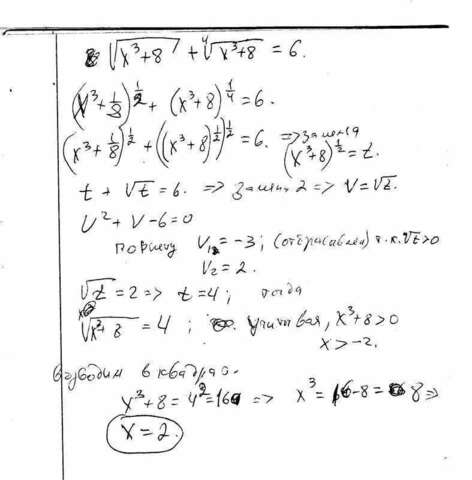 √(x³+8) + ⁴√(x³+8) = 6.
(x³+1/8)^(1/2) + (x³+8)^(1/4) = 6.
(x³+1/8)^(1/2) + ((x³+8)^(1/2))^(1/2) = 6. => замена
(x³+8)^(1/2) = t.
t + √t = 6. => замена 2 => V = √t.
V² + V - 6 = 0
по Виету V₁ = -3; (отбрасываем) т.к. √t > 0
V₂ = 2.
√t = 2 => t = 4; тогда
√(x³+8) = 4; учитывая, x³+8 > 0
x > -2.
возводим в квадрат.
x³+8 = 4² = 16 => x³ = 16-8 = 8 =>
x = 2.